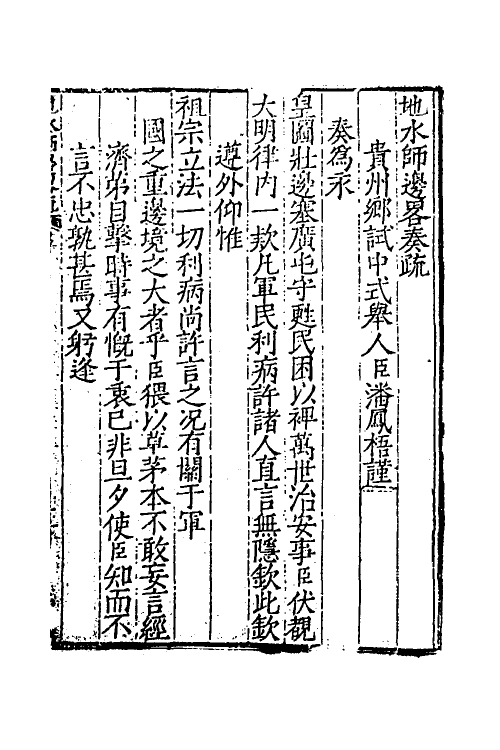 地水師邊畧奏疏
貴州鄉試中式舉人臣潘鳳梧謹
奏爲永
皇圖壯邊塞廣屯守甦民困以裨萬世治安事臣伏覩
大明律內一款凡軍民利病許諸人直言無隱欽此欽
遵外仰惟
祖宗立法一切利病尚許言之况有關于軍
國之重邊境之大者乎臣猥以草茅本不敢妄言經
濟弟目擊時事有慨于衷已非旦夕使臣知而不
言不忠孰甚焉又躬逢